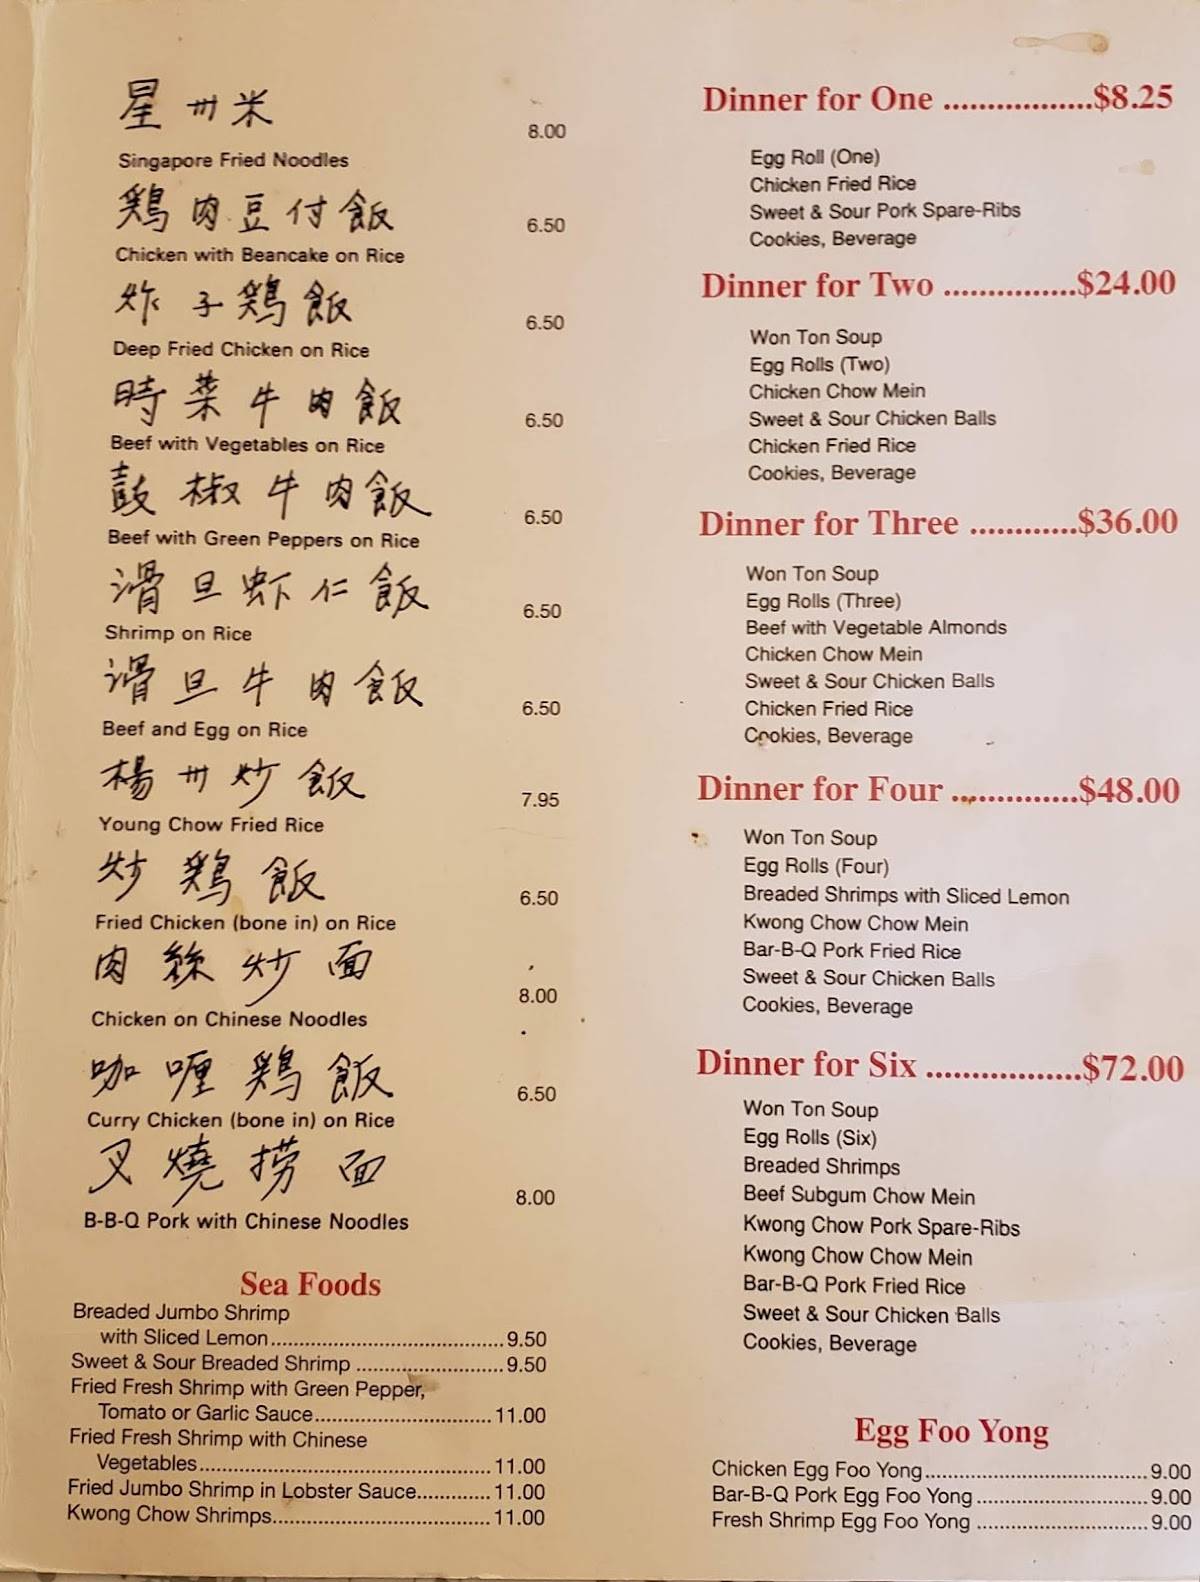 星卅米
8.00
Singapore Fried Noodles
鶏肉豆付飯
6.50
Chicken with Beancake on Rice
炸子鶏飯
6.50
Deep Fried Chicken on Rice
時菜牛肉飯
6.50
Beef with Vegetables on Rice
鼓椒牛肉飯
6.50
Beef with Green Peppers on Rice
滑旦虾仁飯
6.50
Shrimp on Rice
滑旦牛肉飯
6.50
Beef and Egg on Rice
楊卅炒飯
7.95
Young Chow Fried Rice
炒鶏飯
6.50
Fried Chicken (bone in) on Rice
肉絲炒面
8.00
Chicken on Chinese Noodles
咖喱鶏飯
6.50
Curry Chicken (bone in) on Rice
叉燒捞面
8.00
B-B-Q Pork with Chinese Noodles
Sea Foods
Breaded Jumbo Shrimp
with Sliced Lemon........................................9.50
Sweet & Sour Breaded Shrimp .........................9.50
Fried Fresh Shrimp with Green Pepper,
Tomato or Garlic Sauce..............................11.00
Fried Fresh Shrimp with Chinese
Vegetables..................................................11.00
Fried Jumbo Shrimp in Lobster Sauce.............11.00
Kwong Chow Shrimps.....................................11.00
Dinner for One .................$8.25
Egg Roll (One)
Chicken Fried Rice
Sweet & Sour Pork Spare-Ribs
Cookies, Beverage
Dinner for Two ...............$24.00
Won Ton Soup
Egg Rolls (Two)
Chicken Chow Mein
Sweet & Sour Chicken Balls
Chicken Fried Rice
Cookies, Beverage
Dinner for Three ............$36.00
Won Ton Soup
Egg Rolls (Three)
Beef with Vegetable Almonds
Chicken Chow Mein
Sweet & Sour Chicken Balls
Chicken Fried Rice
Cookies, Beverage
Dinner for Four ..............$48.00
Won Ton Soup
Egg Rolls (Four)
Breaded Shrimps with Sliced Lemon
Kwong Chow Chow Mein
Bar-B-Q Pork Fried Rice
Sweet & Sour Chicken Balls
Cookies, Beverage
Dinner for Six .................$72.00
Won Ton Soup
Egg Rolls (Six)
Breaded Shrimps
Beef Subgum Chow Mein
Kwong Chow Pork Spare-Ribs
Kwong Chow Chow Mein
Bar-B-Q Pork Fried Rice
Sweet & Sour Chicken Balls
Cookies, Beverage
Egg Foo Yong
Chicken Egg Foo Yong......................................9.00
Bar-B-Q Pork Egg Foo Yong .............................9.00
Fresh Shrimp Egg Foo Yong .............................9.00